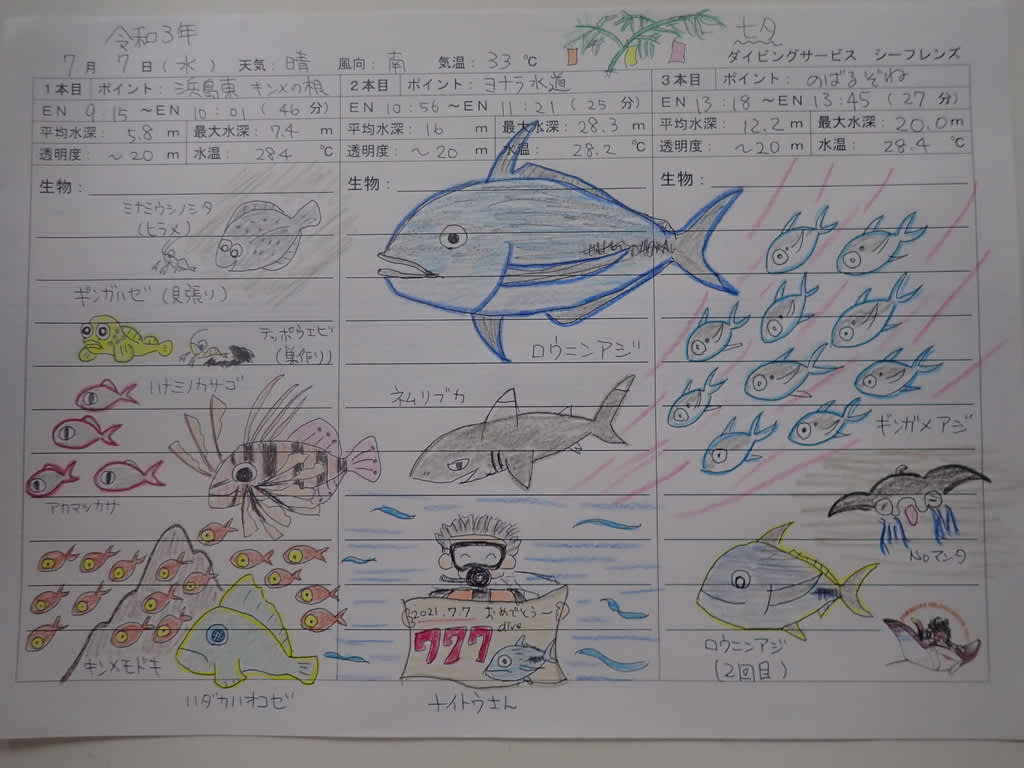 令和3年
七夕
7月 7日(水) 天気:晴 風向:南 気温:33℃ ダイビングサービス シーフレンズ
1本目 ポイント:浜島東 キンメの根
EN 9:15 ~EN 10:01 (46分)
平均水深: 5.8 m 最大水深: 7.4 m
透明度: ~20 m 水温: 28.4 ℃
生物:
ミナミウシノシタ
(ヒラメ)
ギンガハゼ(見張り)
テッポウエビ
(巣作り)
ハナミノカサゴ
アカマツカサ
キンメモドキ
ハダカハオコゼ
2本目 ポイント:ヨナラ水道
EN 10:56 ~EN 11:21 (25分)
平均水深: 16 m 最大水深: 28.3 m
透明度: ~20 m 水温: 28.2 ℃
生物:
ロウニンアジ
ネムリブカ
2021.7.7 おめでとう~
777 dive
ナイトウさん
3本目 ポイント:のばるぞね
EN 13:18 ~EN 13:45 (27分)
平均水深: 12.2 m 最大水深: 20.0 m
透明度: ~20 m 水温: 28.4 ℃
生物:
ギンガメアジ
Noマンタ
ロウニンアジ
(2回目)